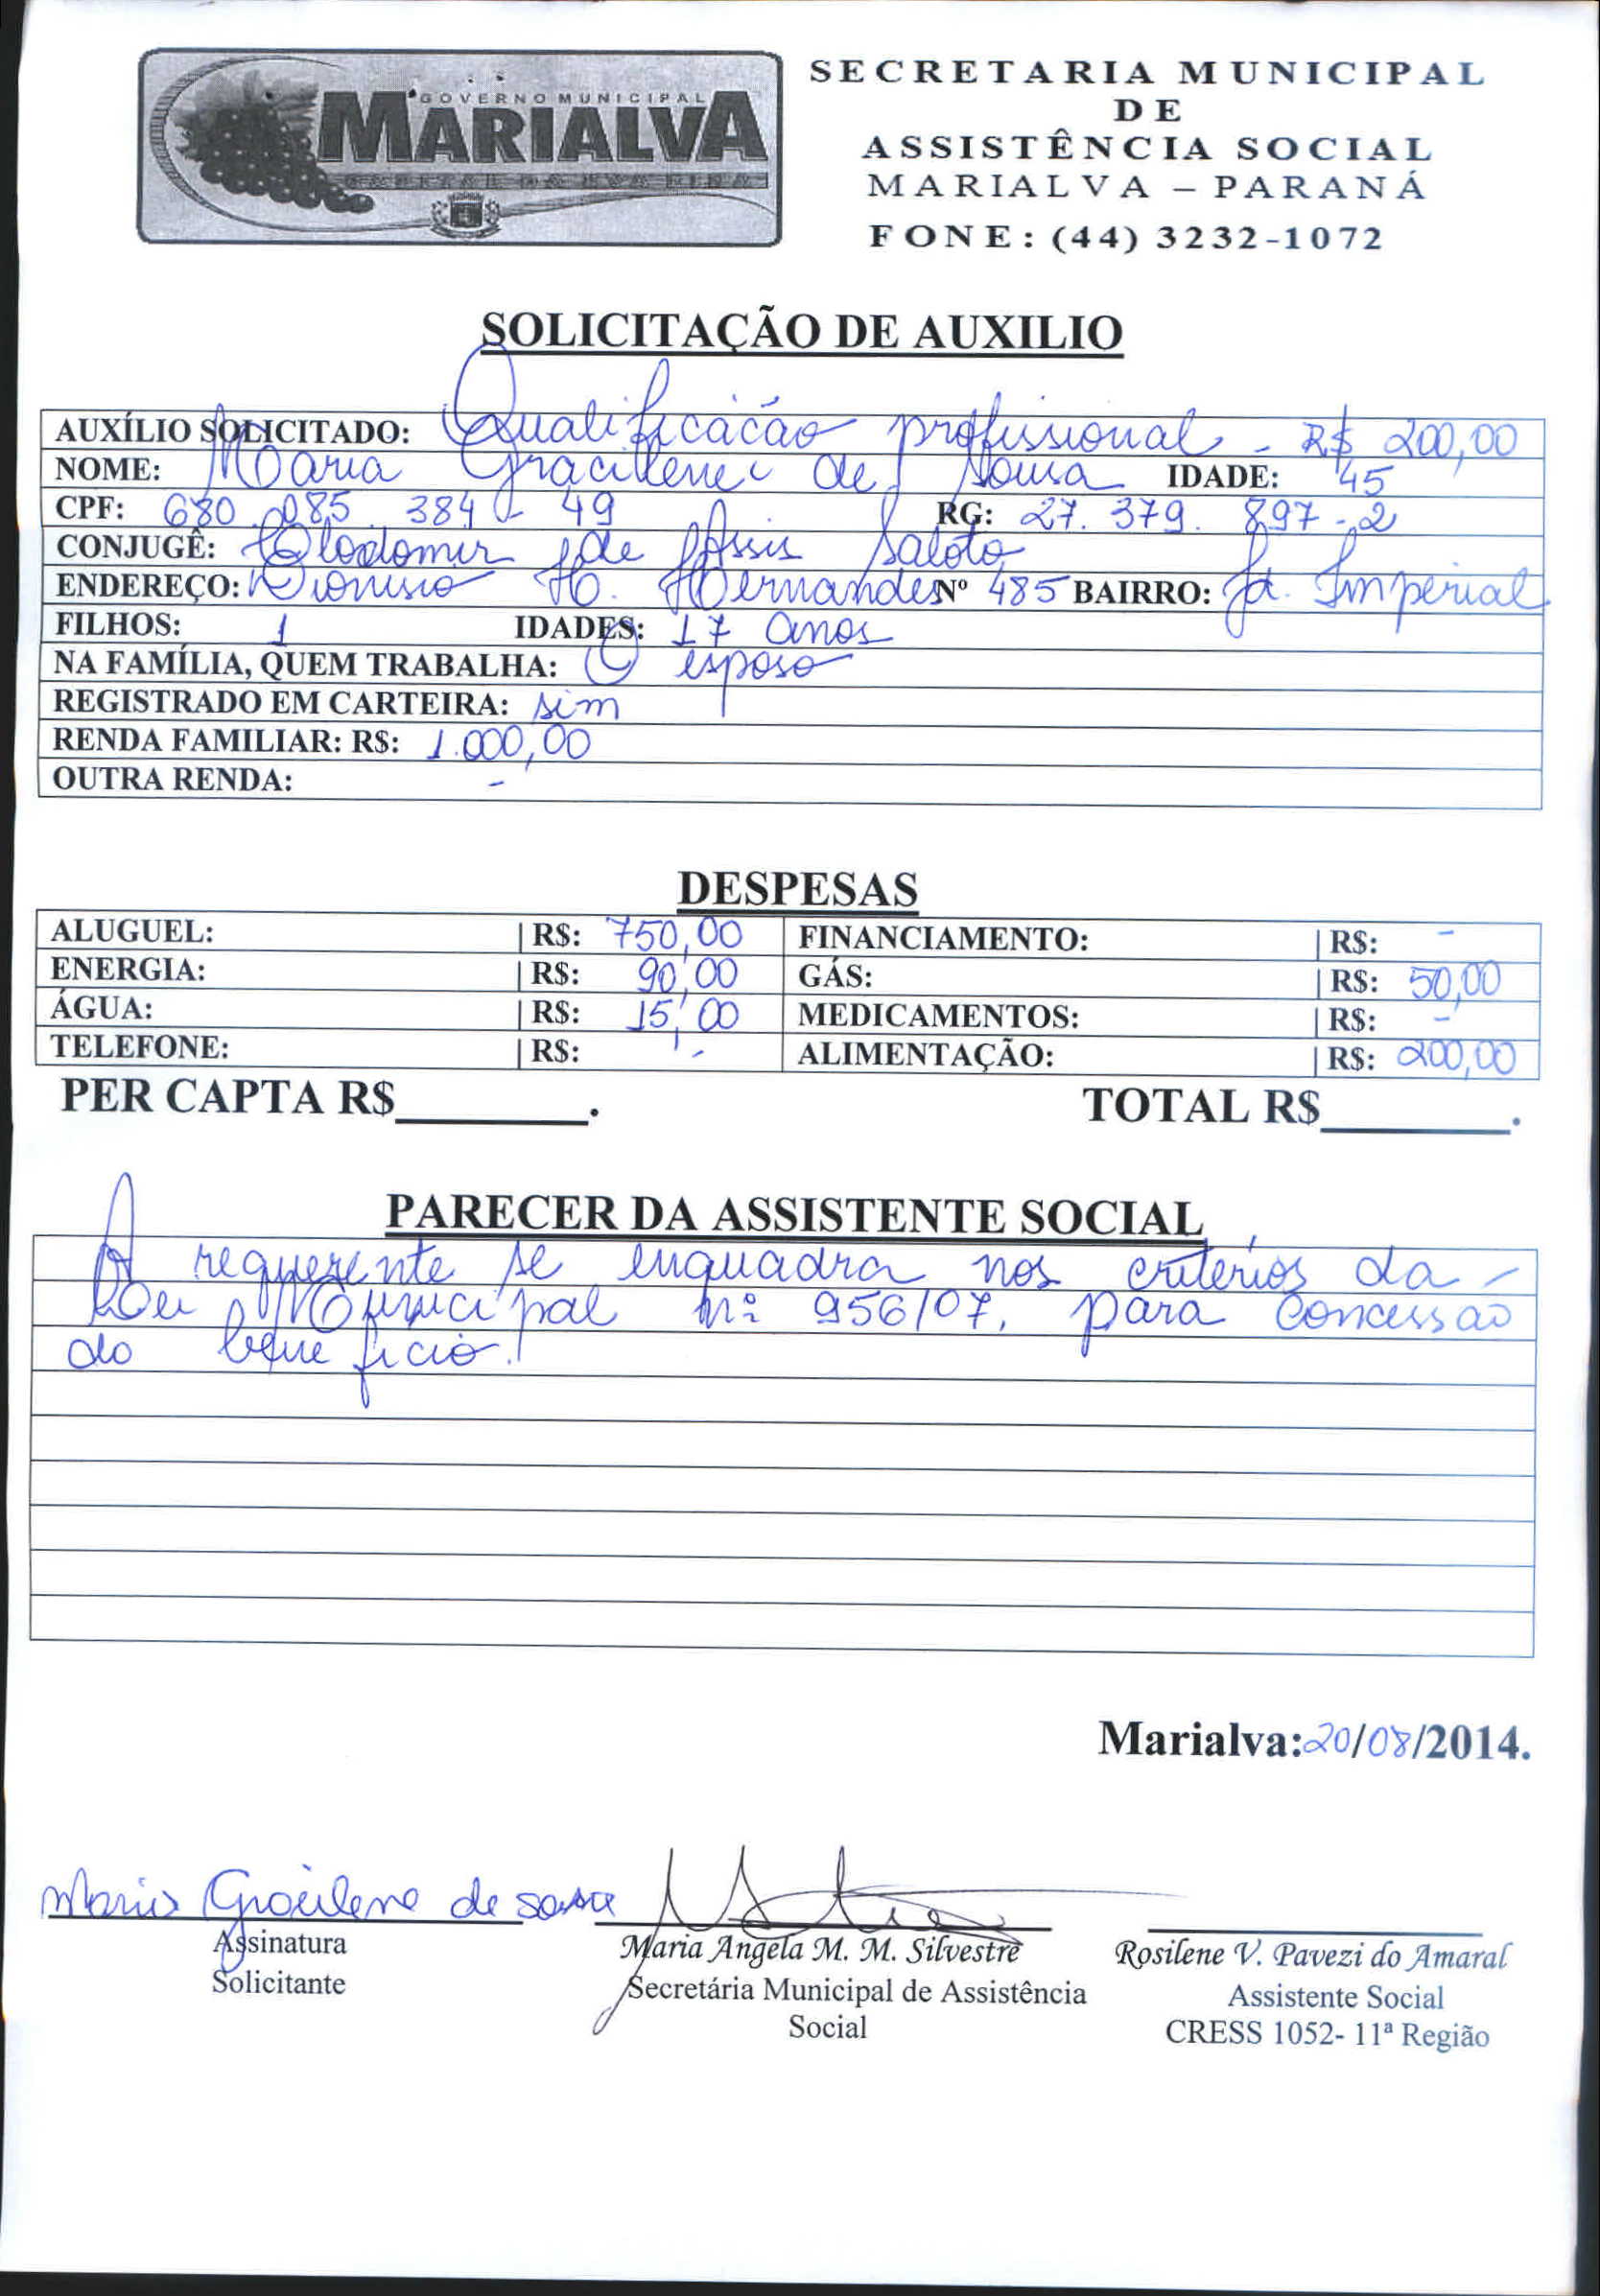 GOVERNO MUNICIPAL
MARIALVA
CAPITAL DA UVA FINA
SECRETARIA MUNICIPAL
DE
ASSISTÊNCIA SOCIAL
MARIALVA – PARANÁ
FONE: (44) 3232-1072
SOLICITAÇÃO DE AUXILIO
AUXÍLIO SOLICITADO: Qualificacão profissional - R$ 200,00
NOME: Maria Gracilene de Sousa IDADE: 45
CPF: 680.085.384-49 RG: 27.379.897-2
CONJUGÊ: Clodomir de Assis Saloto
ENDEREÇO: Dionisio H. Hernandes Nº 485 BAIRRO: Jd. Imperial
FILHOS: 1 IDADES: 17 anos
NA FAMÍLIA, QUEM TRABALHA: O esposo
REGISTRADO EM CARTEIRA: sim
RENDA FAMILIAR: R$: 1.000,00
OUTRA RENDA: -
DESPESAS
ALUGUEL: | R$: 750,00 FINANCIAMENTO: | R$: -
ENERGIA: | R$: 90,00 GÁS: | R$: 50,00
ÁGUA: | R$: 15,00 MEDICAMENTOS: | R$: -
TELEFONE: | R$: - ALIMENTAÇÃO: | R$: 200,00
PER CAPTA R$________. TOTAL R$________.
PARECER DA ASSISTENTE SOCIAL
A requerente se enquadra nos critérios da
Lei Municipal nº 956/07, para concessão
do beneficio.
Marialva:20/08/2014.
Maria Gracilene de sousa
Assinatura Maria Angela M. M. Silvestre Rosilene V. Pavezi do Amaral
Solicitante Secretária Municipal de Assistência Assistente Social
Social CRESS 1052- 11ª Região